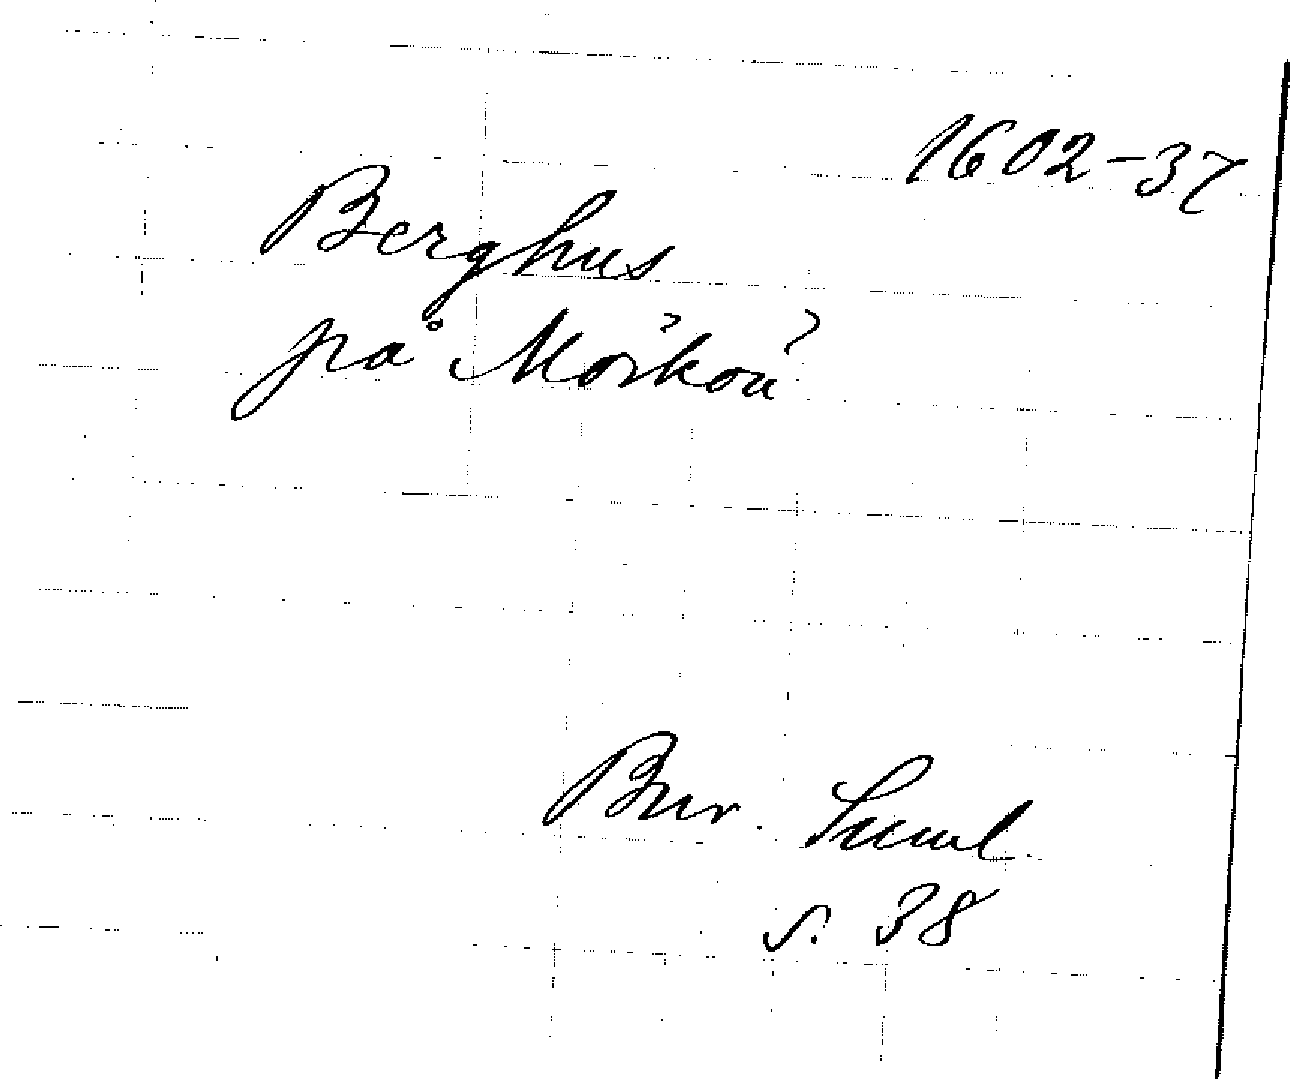 1602-37
Berghus
på Mörköa?
Bur. Saml.
s. 38